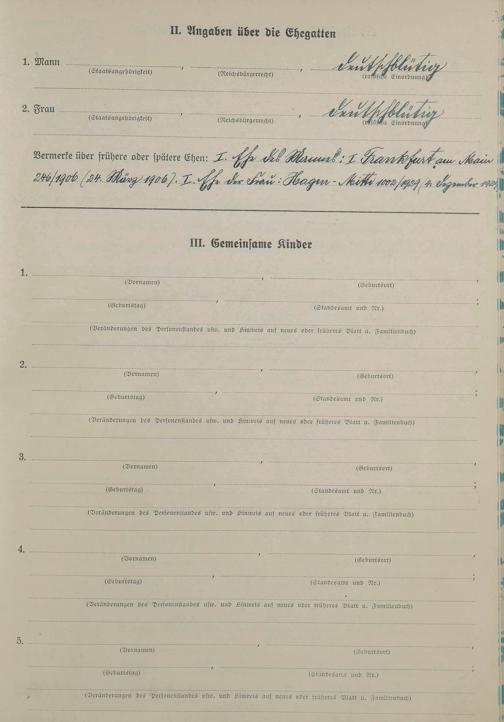 II. Angaben über die Ehegatten
1. Mann , , deutschblütig
(Staatsangehörigkeit) (Reichsbürgerrecht) (rassische Einordnung)
2. Frau , , deutschblütig
(Staatsangehörigkeit) (Reichsbürgerrecht) (rassische Einordnung)
Vermerke über frühere oder spätere Ehen: I. Ehe des Mannes: I Frankfurt am Main
246/1906 (24. März 1906). I. Ehe der Frau: Hagen-Mitte 1002/1929 (4. Dezember
III. Gemeinsame Kinder
1. , ,
(Vornamen) (Geburtsort)
;
(Geburtstag) (Standesamt und Nr.)
(Veränderungen des Personenstandes usw. und Hinweis auf neues oder früheres Blatt u. Familienbuch)
2. , ,
(Vornamen) (Geburtsort)
;
(Geburtstag) (Standesamt und Nr.)
(Veränderungen des Personenstandes usw. und Hinweis auf neues oder früheres Blatt u. Familienbuch)
3. , ,
(Vornamen) (Geburtsort)
;
(Geburtstag) (Standesamt und Nr.)
(Veränderungen des Personenstandes usw. und Hinweis auf neues oder früheres Blatt u. Familienbuch)
4. , ,
(Vornamen) (Geburtsort)
;
(Geburtstag) (Standesamt und Nr.)
(Veränderungen des Personenstandes usw. und Hinweis auf neues oder früheres Blatt u. Familienbuch)
5. , ,
(Vornamen) (Geburtsort)
;
(Geburtstag) (Standesamt und Nr.)
(Veränderungen des Personenstandes usw. und Hinweis auf neues oder früheres Blatt u. Familienbuch)